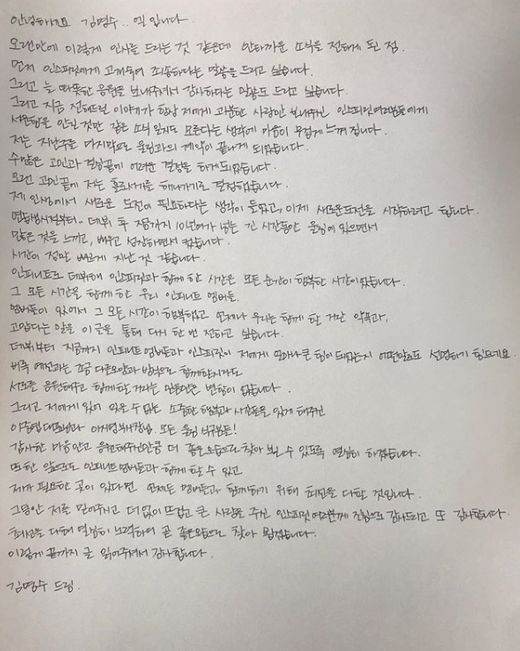 안녕하세요 김명수.. 엘 입니다.
오랜만에 이렇게 인사를 드리는 것 같은데 안타까운 소식을 전하게 된 점.
먼저 인스피릿에게 고개숙여 죄송하다는 말씀을 드리고 싶습니다.
그리고 늘 따뜻한 응원을 보내주셔서 감사하다는 말씀도 드리고 싶습니다.
그리고 지금 전해드릴 이야기가 항상 저에게 과분한 사랑만 보내주신 인스피릿 여러분들에게
서운함을 안길 것만 같은 소식 일지도 모른다는 생각에 마음이 무겁게 느껴집니다.
저는 지난주를 마지막으로 울림과의 계약이 끝나게 되었습니다.
수많은 고민과 결정끝에 어려운 결정을 하게되었습니다.
오랜 고민끝에 저는 홀로서기를 해나가기로 결정했습니다.
제 인생에서 새로운 도전이 필요하다는 생각이 들었고, 이제 새로운도전을 시작하려고 합니다.
연습생시절부터~ 데뷔 후 지금까지 10년여가 넘는 긴 시간동안 울림에 있으면서
많은 것을 느끼고, 배우고 성장하면서 왔습니다.
시간이 정말 빠르게 지난 것 같습니다.
인피니트로 데뷔해 인스피릿과 함께 한 시간은 모든 순간이 행복한 시간이었습니다.
그 모든 시간을 함께 한 우리 인피니트 멤버들.
멤버들이 있어서 그 모든 시간이 행복했고 언제나 우리는 함께 할 거란 약속과,
고맙다는 말을 이 글을 통해 다시 한 번 전하고 싶습니다.
데뷔부터 지금까지 인피니트 멤버들과 인스피릿이 저에게 얼마나 큰 힘이 되었는지 어떤말로도 설명하기 힘드네요.
비록 예전과는 조금 다른모양과 방법으로 함께하겠지만
서로를 응원해주고 함께 할 거라는 믿음만은 변함이 없습니다.
그리고 저에게 잊이 있을 수 없는 소중한 행복과 시간들을 있게 해주신
이중엽 대표님과 이기영 부사장님. 모든 울림 식구분들!
감사한 마음안고 응원해주신만큼 더 좋은모습으로 찾아 뵐 수 있도록 열심히 하겠습니다.
또한 앞으로도 인피니트 멤버들과 함께 할 수 있고
제가 필요한 곳이 있다면 언제든 멤버들과 함께하기 위해 최선을 다할 것입니다.
그동안 저를 믿어주시고 더 없이 뜨겁고 큰 사랑을 주신 인스피릿 여러분께 진심으로 감사드리고 또 감사합니다.
최선을 다해 열심히 노력하여 곧 좋은모습으로 찾아 뵙겠습니다.
이렇게 끝까지 글 읽어주셔서 감사합니다.
김명수 드림.